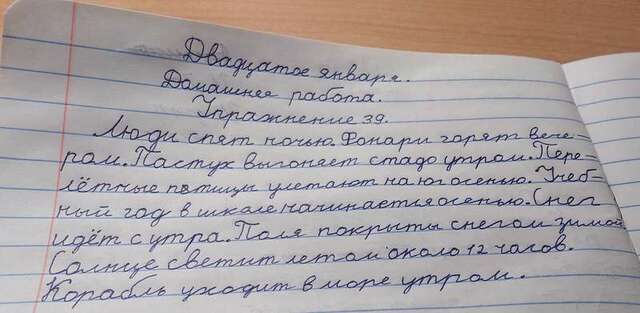 Двадцатое января.
Домашнея работа.
Упражнение 39.
Люди спят ночью. Фонари горят вече-
ром. Пастух выгоняет стадо утром. Пере-
лётные птицы улетают на юг осенью. Учеб-
ный год в школе начинается осенью. Снег
идёт с утра. Поля покрыты снегом зимой
Солнце светит летом около 12 часов.
Корабль уходит в море утром.